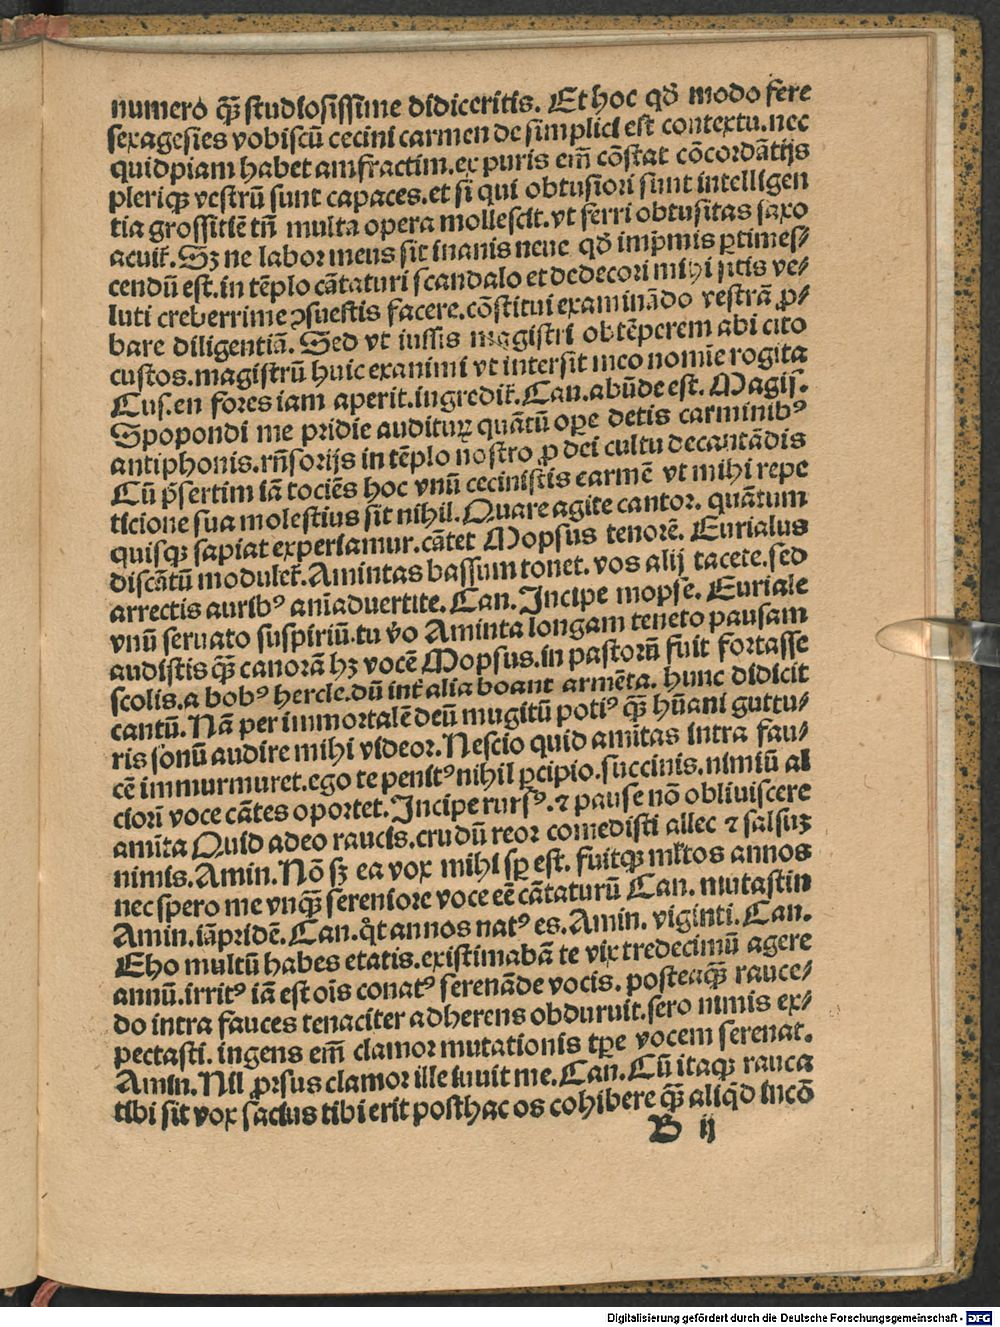 numero qꝫ̄ studiosissime didiceritis. Et hoc qđ modo fere
sexagesies vobiscū cecini carmen de simplici est contextu. nec
quidpiam habet amfractim. ex puris em̄ cōstat cōcordātijs
pleriqꝫ vestrū sunt capaces. et si qui obtusiori sunt intelligen
tia grossitiē tn̄ multa opera mollescit. vt ferri obtusitas saxo
acuit᷑. Sꝫ ne labor mens sit inanis neue qđ imp̄mis ꝑtimes⸗
cendū est. in tēplo cātaturi scandalo et dedecori mihi sitis ve⸗
luti creberrime ꝯsuestis facere. cōstitui examinādo vestrā ꝓ⸗
bare diligentiā. Sed vt iussis magistri obtēperem abi cito
custos. magistrū huic examini vt intersit meo nomīe rogita
Cus. en fores iam aperit. ingredit᷑. Can. abūde est. Magiſ.
Spopondi me pridie audituꝝ quātū oꝑe detis carminibꝰ
antiphonis. rn̄sorijs in tēplo nostro ꝓ dei cultu decantādis
Cū p̄sertim iā tociēs hoc vnū cecinistis carmē vt mihi repe
ticione sua molestius sit nihil. Quare agite cantor. quātum
quisqꝫ sapiat experiamur. cātet Mopsus tenorē. Eurialus
discātū modulet᷑. Amintas bassum tonet. vos alij tacete. sed
arrectis auribꝰ aīaduertite. Can. Incipe mopse. Euriale
vnū seruato suspiriū. tu v̊o Aminta longam teneto pausam
audistis qꝫ̄ canorā hꝫ vocē Mopsus. in pastorū fuit fortasse
scolis. a bobꝰ hercle. dū int᷑ alia boant armēta. hunc didicit
cantū. Nā per immortalē deū mugitū potiꝰ qꝫ̄ hūani guttu⸗
ris sonū audire mihi videor. Nescio quid amītas intra fau⸗
cē immurmuret. ego te penitꝰ nihil ꝑcipio. succinis. nimiū al
ciori voce cātes oportet. Incipe rursꝰ. ⁊ pause nō obliuiscere
amīta Quid adeo raucis. crudū reor comedisti allec ⁊ salsuꝫ
nimis. Amin. Nō sꝫ ea vox mihi sꝑ est. fuitqꝫ ml̓tos annos
nec spero me vnqꝫ̄ sereniore voce eē cātaturū Can. mutastin
Amin. iāpridē. Can. qͦt annos natꝰ es. Amin. viginti. Can.
Eho multū habes etatis. existimabā te vix tredecimū agere
annū. irritꝰ iā est oīs conatꝰ serenāde vocis. posteaqꝫ̄ rauce⸗
do intra fauces tenaciter adherens obduruit. sero nimis ex⸗
pectasti. ingens em̄ clamor mutationis tꝑe vocem serenat.
Amin. Nil ꝓrsus clamor ille iuuit me. Can. Cū itaqꝫ rauca
tibi sit vox sācius tibi erit posthac os cohibere qꝫ̄ aliqͥd incō
B ij
Digitalisierung gefördert durch die Deutsche Forschungsgemeinschaft - DFG